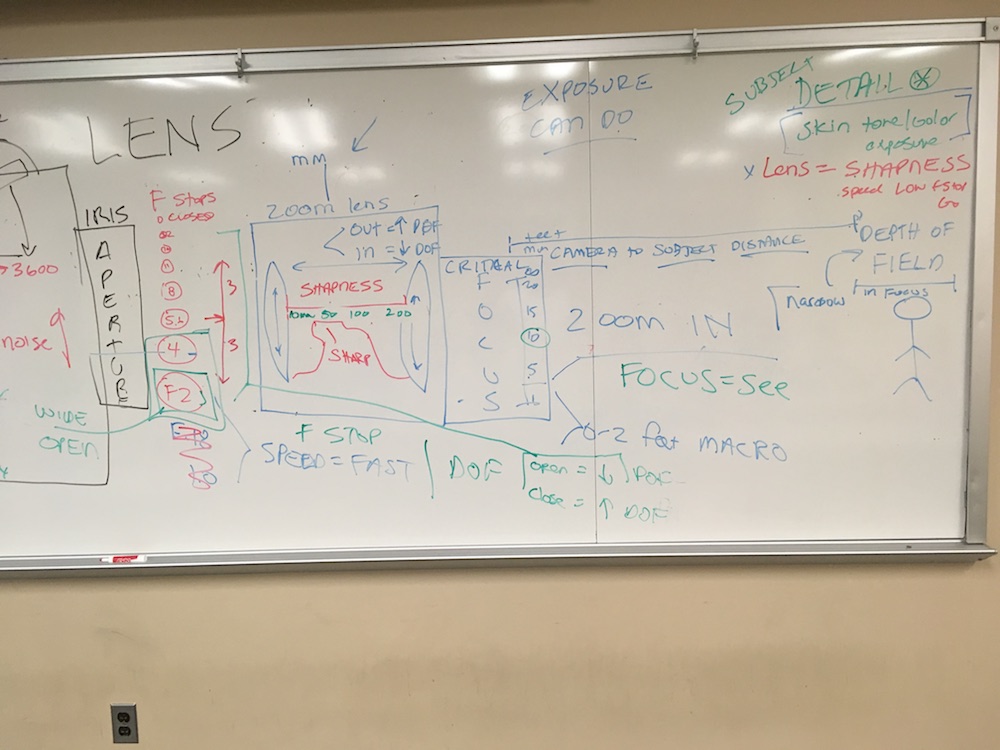 LENS
EXPOSURE
CAN DO
SUBJECT
DETAIL
Skin tone/color
exposure
x Lens = SHAPNESS
speed LOW f stop
Go
mm
IRIS
APERTURE
F STOPS
CLOSED
22
11
8
5.6
4
F2
3
3
3600
noise
WIDE
OPEN
zoom lens
OUT = ↑ DEF
IN = ↓ DOF
SHAPNESS
10mm 50 100 200
SHARP
F STOP
SPEED = FAST
feet
min
CAMERA TO SUBJECT DISTANCE
CRITICAL
FOCUS
20
15
10
5
DEPTH OF
FIELD
in Focus
Narrow
ZOOM IN
FOCUS = See
0-2 feet MACRO
DOF
open = ↓ DOF
Close = ↑ DOF